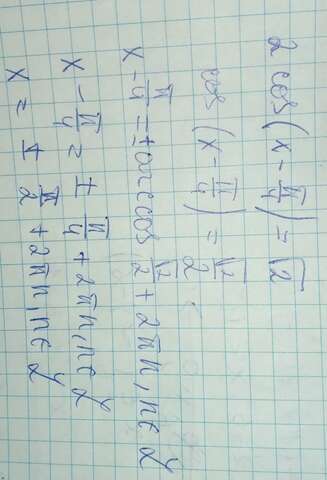 2 cos (x - π/4) = √2
cos (x - π/4) = √2/2
x - π/4 = ± arccos √2/2 + 2πn, n ∈ Z
x - π/4 = ± π/4 + 2πn, n ∈ Z
x = ± π/2 + 2πn, n ∈ Z